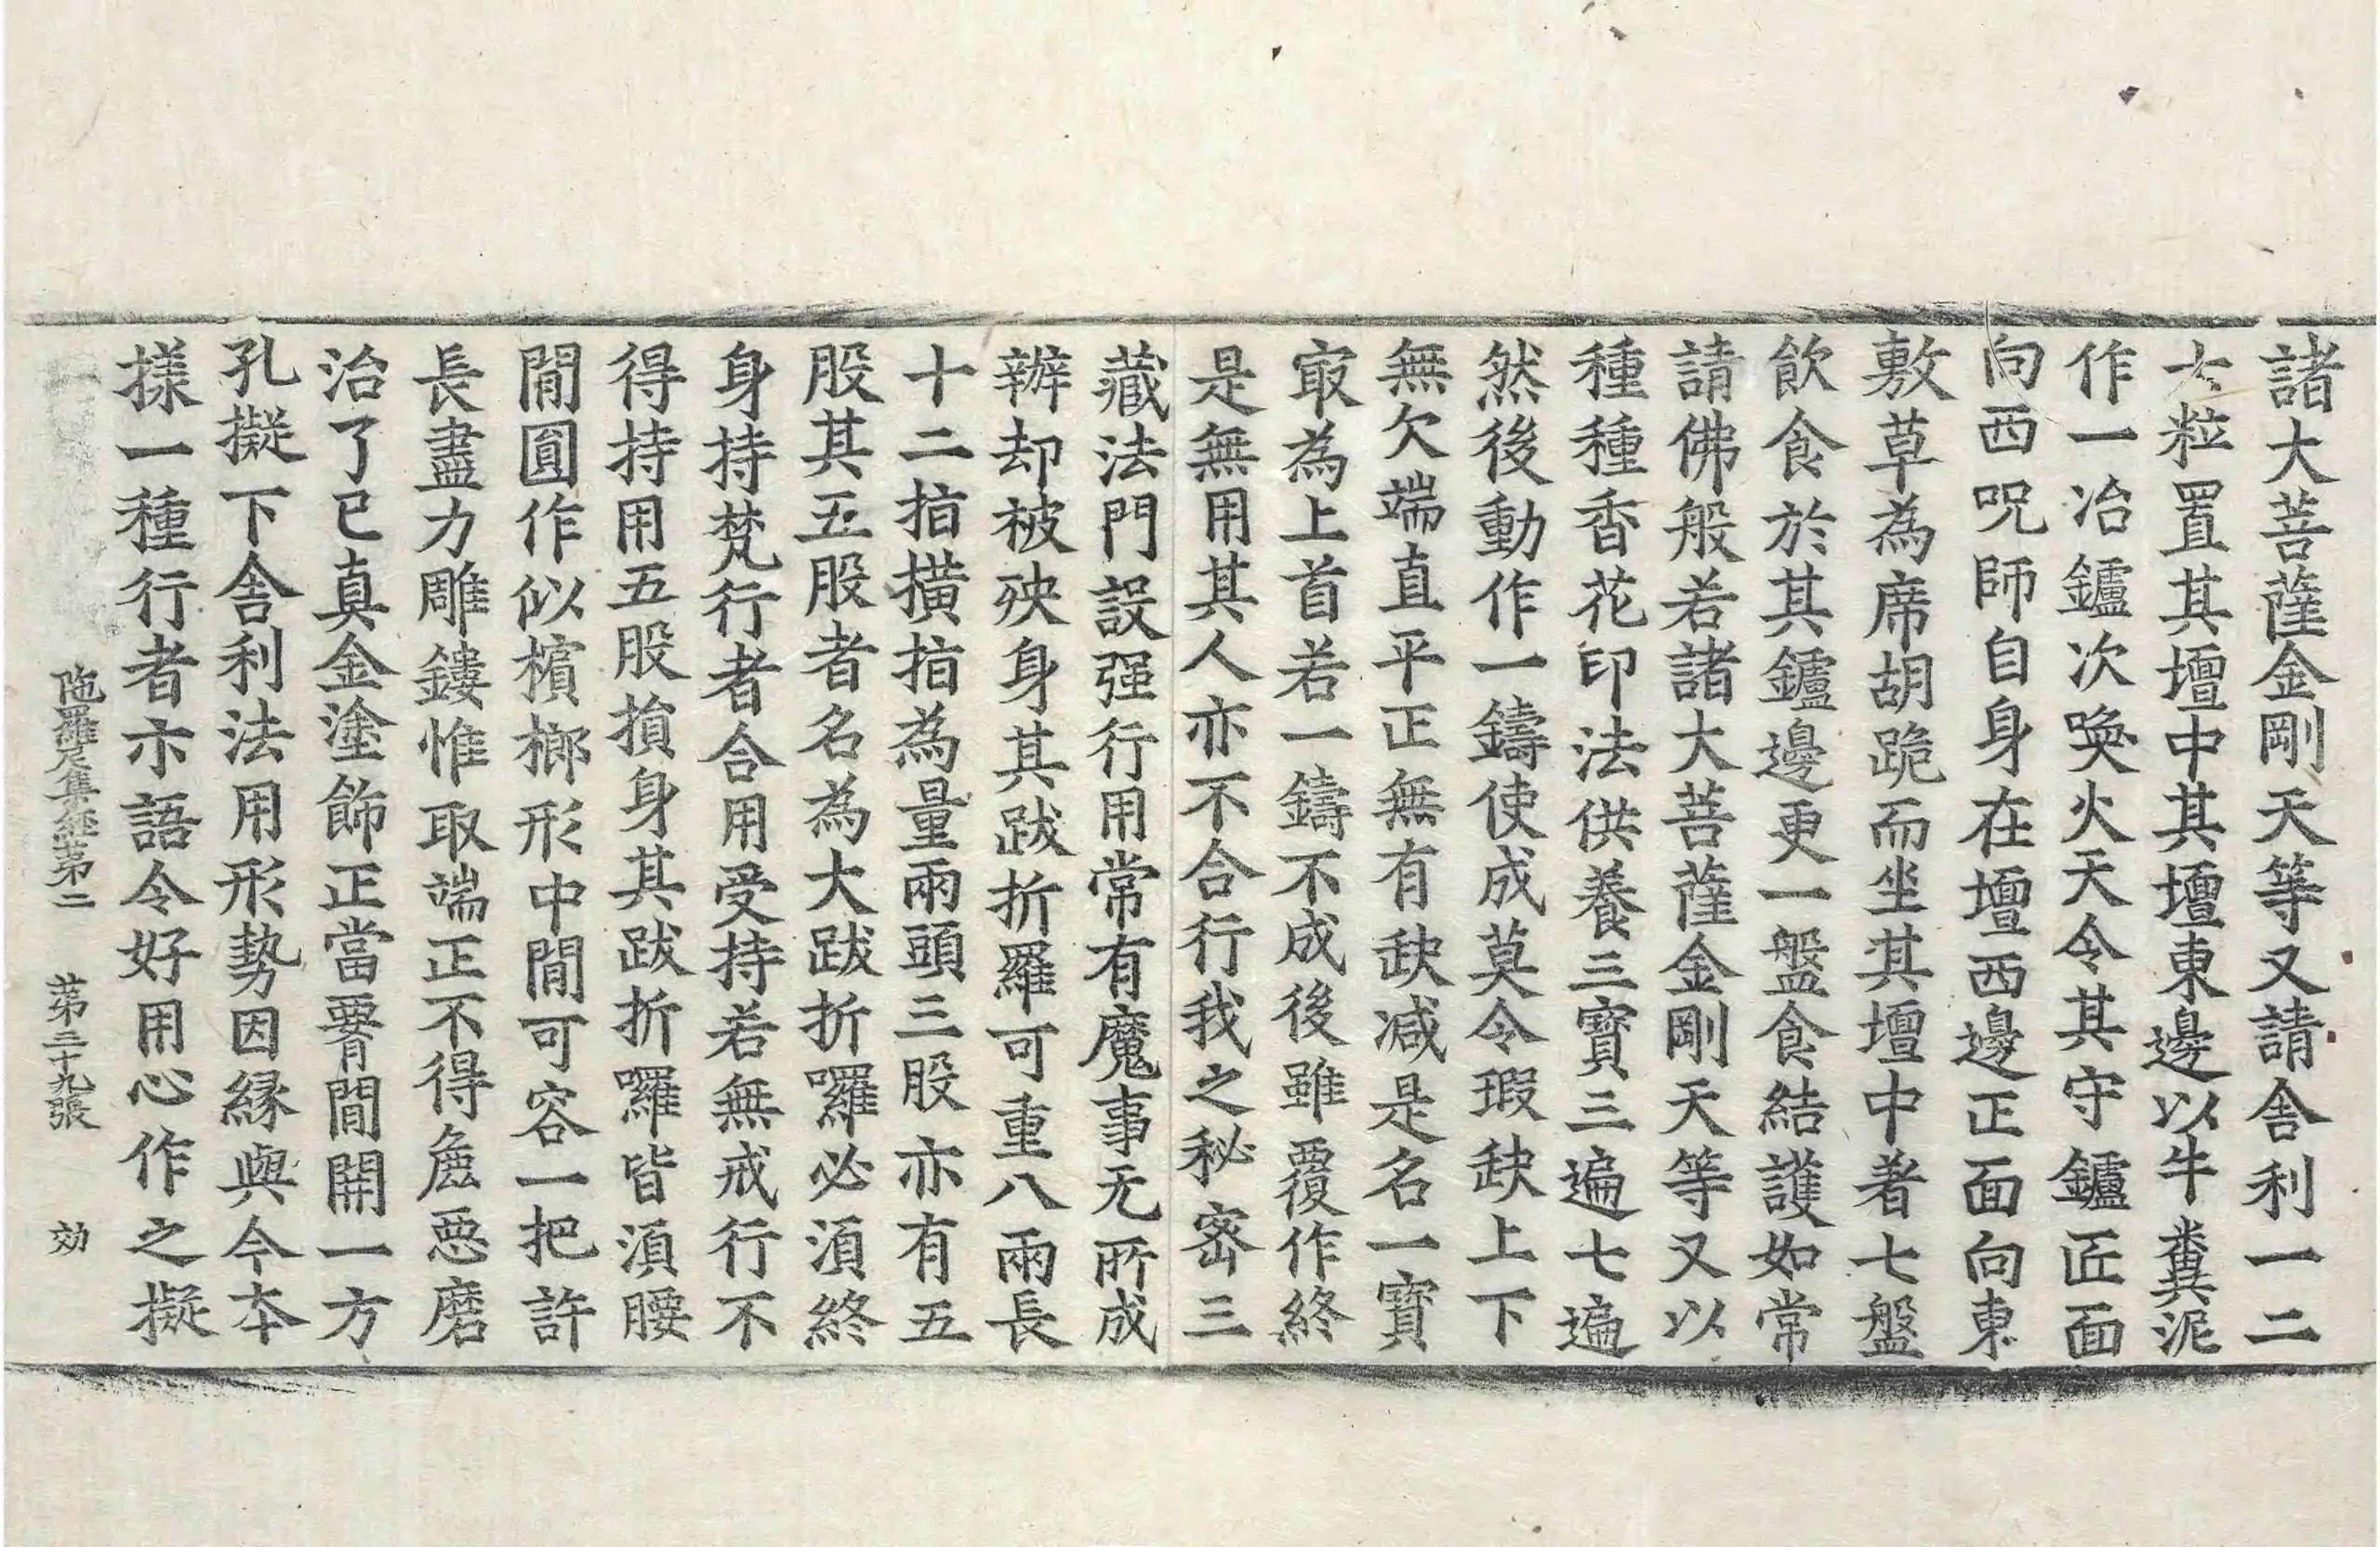 諸大菩薩金剛天等又請舍利一二
七粒置其壇中其壇東邊以牛糞泥
作一冶鑪次喚火天令其守鑪匠面
向西呪師自身在壇西邊正面向東
敷草為席胡跪而坐其壇中著七盤
飲食於其鑪邊更一盤食結護如常
請佛般若諸大菩薩金剛天等又以
種種香花印法供養三寶三遍七遍
然後動作一鑄使成莫令瑕缺上下
無欠端直平正無有缺减是名一寶
㝡為上首若一鑄不成後雖覆作終
是無用其人亦不合行我之秘密三
藏法門設强行用常有魔事无所成
辦却被殃身其跋折羅可重八兩長
十二指撗指為量兩頭三股亦有五
股其五股者名為大跋折囉必湏終
身持梵行者合用受持若無戒行不
得持用五股損身其跋折囉皆湏腰
閒圓作似檳榔形中閒可容一把許
長盡力雕鏤惟取端正不得麁惡磨
治了已真金塗飾正當要閒開一方
孔擬下舍利法用形勢因縁與今本
㨾一種行者亦語令好用心作之擬
陁羅尼集經第二 第二十九張 効